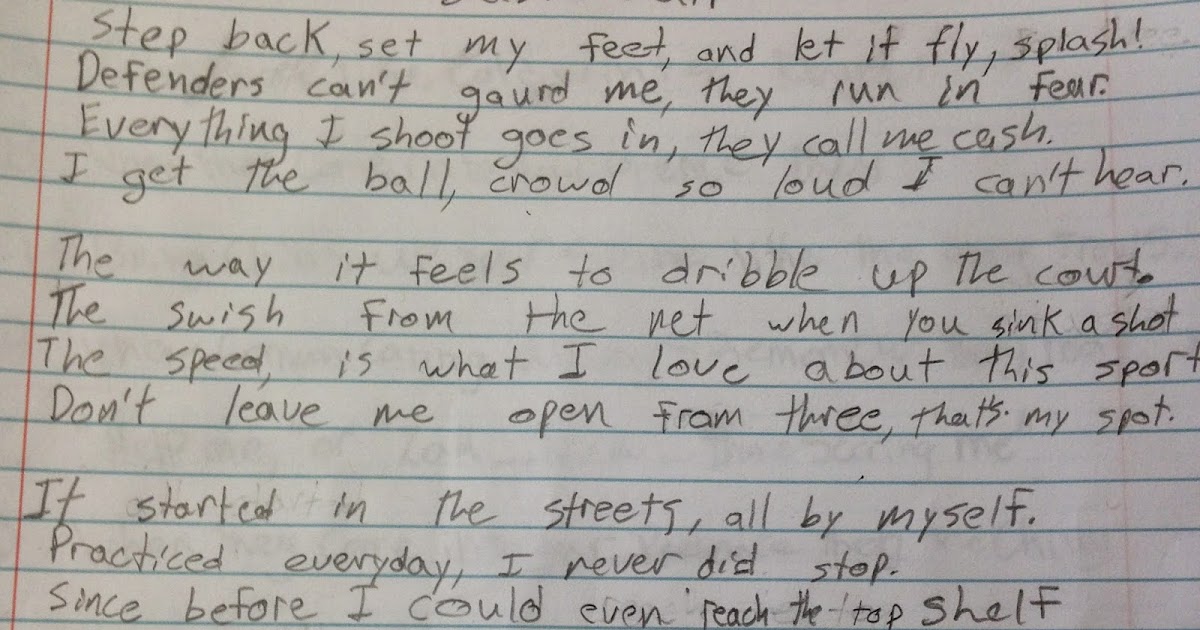 Step back, set my feet, and let it fly, splash!
Defenders can't gaurd me, they run in fear.
Everything I shoot goes in, they call me cash.
I get the ball, crowd so loud I can't hear.
The way it feels to dribble up the court.
The swish from the net when you sink a shot
The speed, is what I love about this sport
Don't leave me open from three, that's my spot.
It started in the streets, all by myself.
Practiced everyday, I never did stop.
Since before I could even reach the top shelf